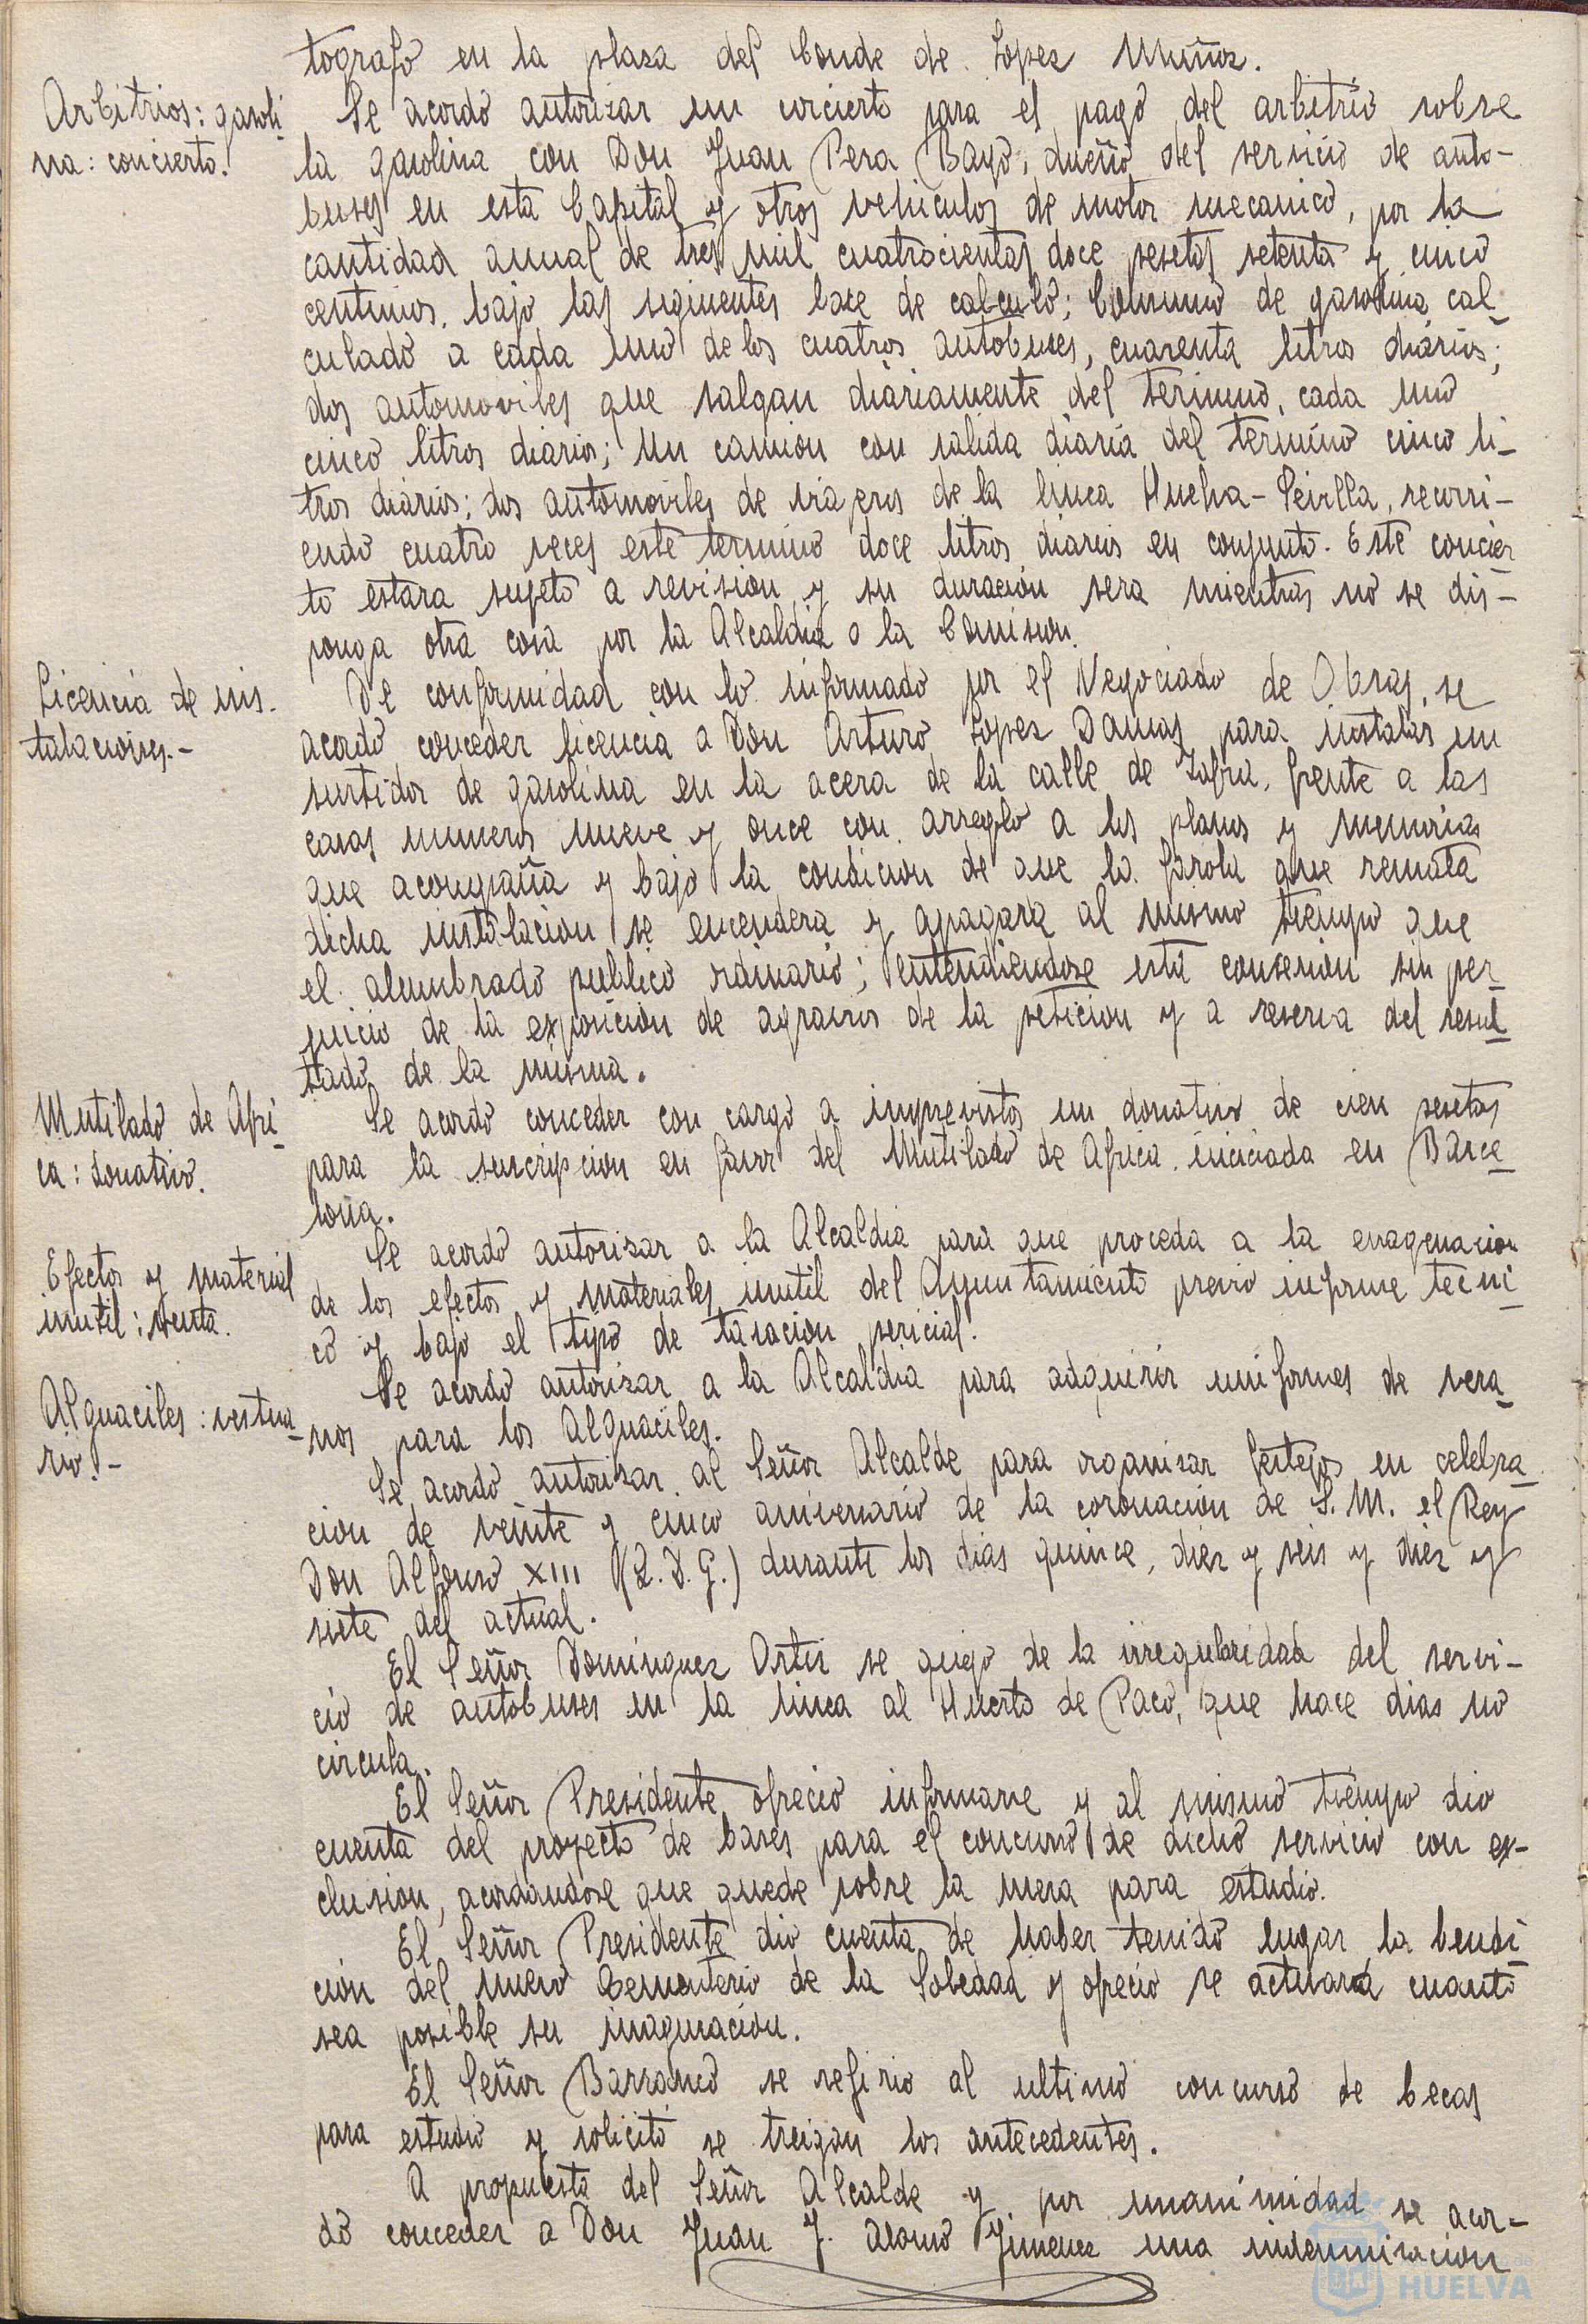 tografo en la plasa del Conde de Lopez Muñoz.
Arbitrios: gasoli-
na: concierto.
Se acordó autorizar un concierto para el pago del arbitrio sobre
la gasolina con Don Juan Pera Bayo, dueño del servicio de auto-
buses en esta Capital y otros vehiculos de motor mecanico, por la
cantidad anual de tres mil cuatrocientas doce pesetas setenta y cinco
centimos, bajo las siguientes base de calculo; Consumo de gasolina cal-
culado a cada uno de los cuatros autobuses, cuarenta litros diarios;
dos automoviles que salgan diariamente del termino, cada uno
cinco litros diarios; Un camion con salida diaria del termino cinco li-
tros diarios; dos automoviles de viageros de la linea Huelva-Sevilla, recorri-
endo cuatro veces este termino doce litros diarios en conjunto. Este concier-
to estara sugeto a revision y su duración sera mientras no se dis-
ponga otra cosa por la Alcaldia o la Comision.
Licencia de ins-
talaciones.-
De conformidad con lo informado por el Negociado de Obras, se
acordó conceder licencia a Don Arturo Lopez Damas para instalar un
surtidor de gasolina en la acera de la calle de Zafra, frente a las
casas numeros nueve y once con arreglo a los planos y memorias
que acompaña y bajo la condicion de que la farola que remata
dicha instalacion se encendera y apagara al mismo tiempo que
el alumbrado publico ordinario; entendiendose esta consesion sin per-
juicio de la exposicion de agravios de la peticion y a reserva del resul-
tado de la misma.
Mutilado de Afri-
ca: donativo.
Se acordó conceder con cargo a imprevistos un donativo de cien pesetas
para la suscripcion en favor del Mutilado de Africa iniciada en Barce-
lona.
Efectos y material
inutil: venta.
Se acordó autorizar a la Alcaldia para que proceda a la enagenacion
de los efectos y materiales inutil del Ayuntamiento previo informe tecni-
co y bajo el tipo de tasacion pericial.
Alguaciles: vestua-
rio.-
Se acordó autorizar a la Alcaldia para adquirir uniformes de vera-
nos para los Alguaciles.
Se acordó autorizar al Señor Alcalde para organizar festejos en celebra-
cion de veinte y cinco aniversario de la coronación de S. M. el Rey
Don Alfonso XIII (Q. D. G.) durante los dias quince, diez y seis y diez y
siete del actual.
El Señor Dominguez Ortiz se quejo de la irregularidad del servi-
cio de autobuses en la linea al Huerto de Paco, que hace dias no
circula.
El Señor Presidente ofreció informarse y al mismo tiempo dio
cuenta del proyecto de bases para el concurso de dicho servicio con ex-
clusion, acordandose que quede sobre la mesa para estudio.
El Señor Presidente dio cuenta de haber tenido lugar la bendi-
cion del nuevo Cementerio de la Soledad y ofrecio se activara cuanto
sea posible su inaguracion.
El Señor Barranco se refirio al ultimo concurso de becas
para estudio y solicitó se treigan los antecedentes.
A propuesta del Señor Alcalde y por unanimidad se acor-
dó conceder a Don Juan J. Alonso Jimenez una indemnizacion
HUELVA